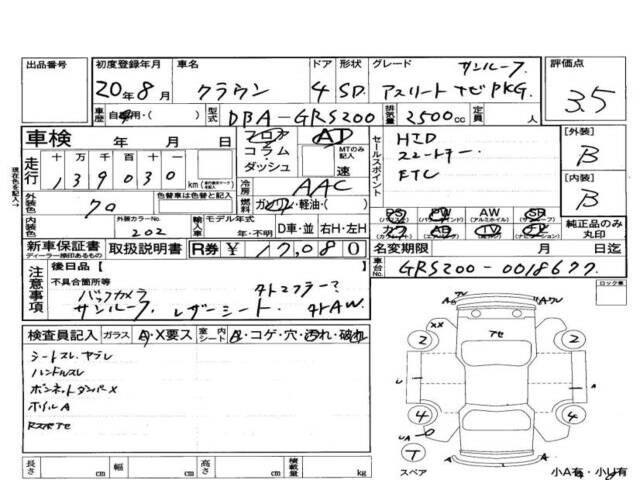 出品番号 初度登録年月 車名 ドア 形状 グレード 評価点
サンルーフ
20年8月 クラウン 4 SD アスリート ナビPKG. 3.5
車歴 自家用・( ) 型式 DBA-GRS200 排気量 2500cc 定員 人
車検 年 月 日 フロア AT
コラム・
ダッシュ
MTのみ記入
速
走行 十万千百十
139030 km
セールスポイント
HID
スマートキー.
ETC
[外装]
B
[内装]
B
冷房 AAC
燃料 ガソリン・軽油・( )
外装色 70
色替車は色替と記入
内装色
外装カラーNo.
202
輸入車 モデル年式
年・不明 D車・並 右H・左H
PS PW AW SR
(アルミホイル)
カワ AB TV ナビ
純正品のみ
丸印
新車保証書 取扱説明書 R券 ¥17,080
ディーラー捺印あるもの
名変期限 月 日迄
車台No. GRS200-0018677.
ロック車
現在色を記入
注意事項
後日品[
不具合箇所等
バックカメラ 外トマフラー?
サンルーフ. レザーシート. 外AW.
検査員記入 ガラス A・X要ス 室内シート ・コゲ・穴・汚れ・破れ
シートスレ.ヤブレ
ハンドルスレ
ボンネットダンパーX
ホイルA
長さ cm 幅 cm 高さ cm 積載量 kg
XX
2 2
4 4
T
スペア
小A有・小U有